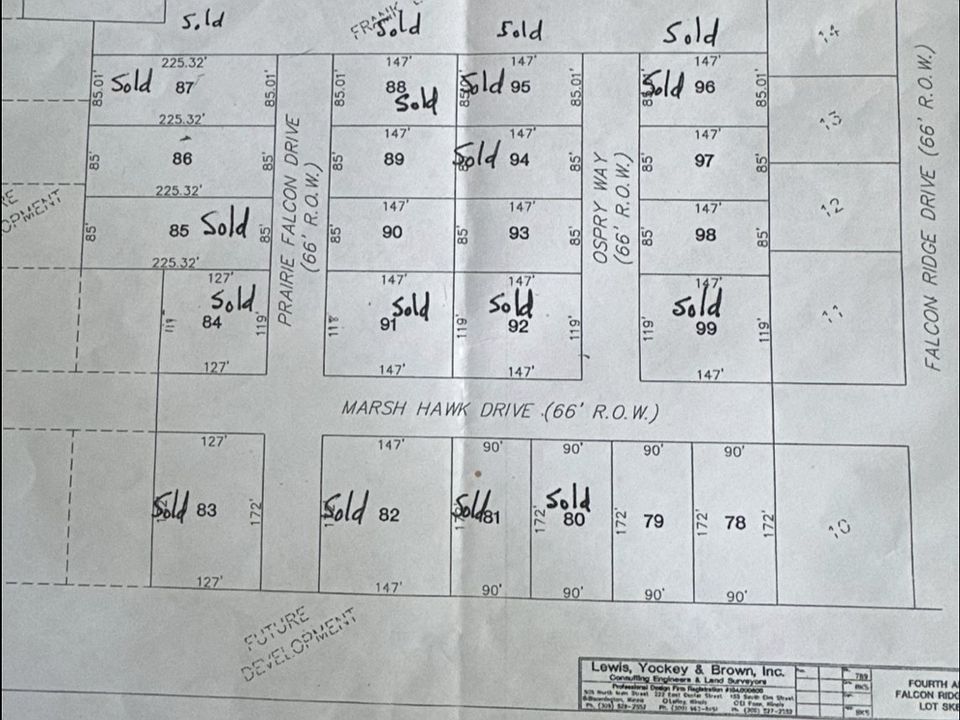 Sold Sold Sold Sold
FRANK
225.32' 147' 147' 147'
85.01' Sold 87 85.01' 85.01' 88 Sold Sold 95 85.01' Sold 96 85.01'
14
225.32' 147' 147' 147'
85' 86 85' 85' 89 Sold 94 85' 85' 97 85'
13
225.32' 147' 147' 147'
85' 85 Sold 85' 85' 90 85' 93 85' 85' 98 85'
12
225.32'
127' 147' 147' 147'
119' Sold 84 119' 91 Sold 119' Sold 92 119' 119' Sold 99 119'
11
127' 147' 147' 147'
PRAIRIE FALCON DRIVE
(66' R.O.W.)
OSPRY WAY
(66' R.O.W.)
FALCON RIDGE DRIVE (66' R.O.W.)
OPMENT
MARSH HAWK DRIVE (66' R.O.W.)
127' 147' 90' 90' 90' 90'
Sold 83 172' Sold 82 Sold 81 172' Sold 80 172' 79 172' 78 172'
10
127' 147' 90' 90' 90' 90'
FUTURE
DEVELOPMENT
Lewis, Yockey & Brown, Inc.
Consulting Engineers & Land Surveyors
Professional Design Firm Registration
505 North Main Street 222 East Center Street
FOURTH A
FALCON RIDG
LOT SKE